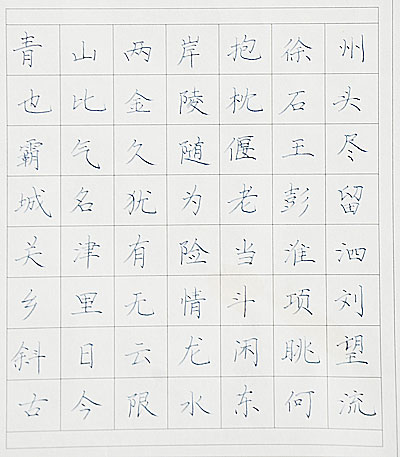 青山两岸抱徐州
也比金陵枕石头
霸气久随偃王尽
城名犹为老彭留
关津有险当淮泗
乡里无情斗项刘
斜日云龙闲眺望
古今限水东何流